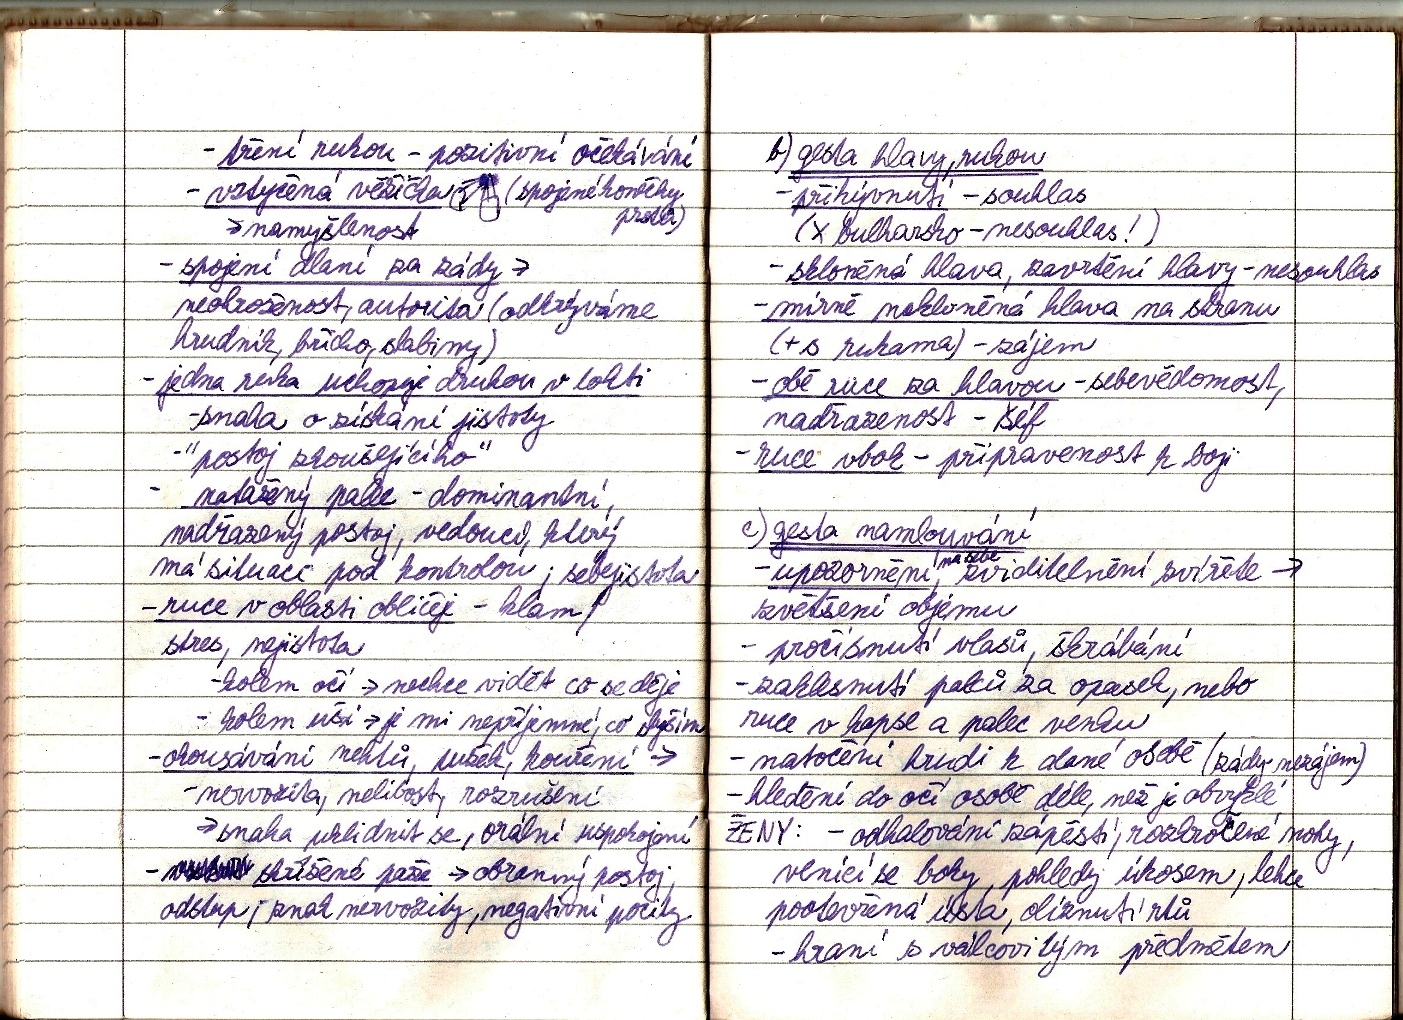 - tření rukou - pozitivní očekávání
- vztyčená věžička (spojené konečky
prstů)
→ namyšlenost
- spojení dlaní za zády →
neohroženost, autorita (odkrýváme
hrudník, břicho, slabiny)
- jedna ruka uchopuje druhou v lokti
- snaha o získání jistoty
- "postoj zkoušejícího"
- natažený palec - dominantní,
nadřazený postoj, vedoucí, který
má situaci pod kontrolou; sebejistota
- ruce v oblasti obličeje - klam,
stres, nejistota
- kolem očí → nechce vidět co se děje
- kolem uší → je mi nepříjemné, co slyším
- okousávání nehtů, tužek, kouření →
- nervozita, nelibost, rozrušení
→ snaha uklidnit se, orální uspokojení
- zkřížené paže → obranný postoj,
odstup; znak nervozity, negativní pocity
b) gesta hlavy, rukou
- přikývnutí - souhlas
(X Bulharsko - nesouhlas!)
- skloněná hlava, zavrtění hlavy - nesouhlas
- mírně nakloněná hlava na stranu
(+ s rukama) - zájem
- obě ruce za hlavou - sebevědomost,
nadřazenost - šéf
- ruce vbok - připravenost k boji
c) gesta namlouvání
- upozornění na sebe, zviditelnění zvířete →
zvětšení objemu
- pročísnutí vlasů, škrábání
- zaklesnutí palců za opasek, nebo
ruce v kapse a palec venku
- natočení hrudi k dané osobě (zády - nezájem)
- hledění do očí osobě déle, než je obvyklé
ŽENY: - odhalování zápěstí, rozkročené nohy,
vlnící se boky, pohledy úkosem, lehce
pootevřená ústa, olíznutí rtů
- hraní s válcovitým předmětem